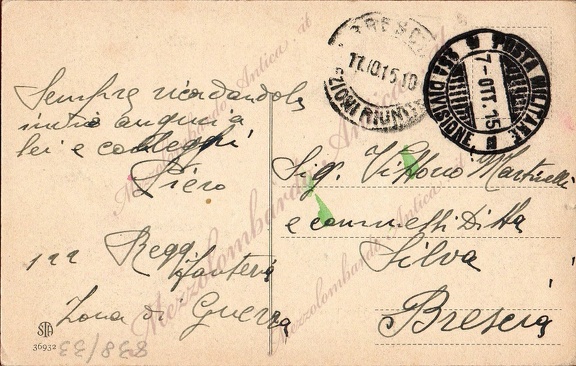 Sempre ricordandola
invio auguri a
lei e colleghi
Piero
122 Regg
Fanteria
Zona di Guerra
STA
36932
838/33
BRESCIA
17.10.15.10
POSTA MILITARE
6TA DIVISIONE
7-OTT.15
Sig. Vittorio Martinelli
e commessi Ditta
Silva
Brescia
Mezzolombardo Antica.it
Mezzolombardo Antica.it